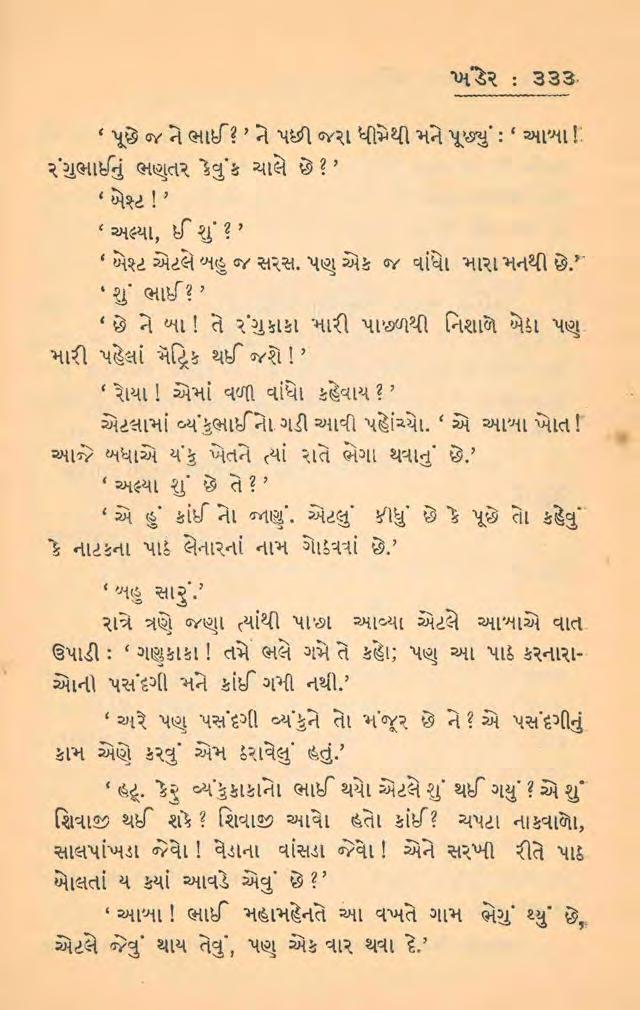 ખંડેર : ૩૩૩
‘ પૂછે જ ને ભાઈ?’ ને પછી જરા ધીમેથી મને પૂછ્યું : ‘ આબા !
રંગુભાઈનું ભણતર કેવુંક ચાલે છે ?’
‘ બેશ્ટ !’
‘ અલ્યા, ઈ શું ?’
‘ બેશ્ટ એટલે બહુ જ સરસ. પણ એક જ વાંધો મારા મનથી છે.’
‘ શું ભાઈ?’
‘ છે ને બા ! તે રંગુકાકા મારી પાછળથી નિશાળે બેઠા પણ
મારી પહેલાં મૅટ્રિક થઈ જશે !’
‘ રોયા ! એમાં વળી વાંધો કહેવાય ?’
એટલામાં વ્યંકુભાઈનો ગડી આવી પહોંચ્યો. ‘ એ આબા ખોત!
આજે બધાએ યંકુ ખેતને ત્યાં રાતે ભેગા થવાનું છે.’
‘ અલ્યા શું છે તે ?’
‘ એ હું કાંઈ નો જાણું. એટલું કીધું છે કે પૂછે તો કહેવું
કે નાટકના પાઠ લેનારનાં નામ ગોઠવવાં છે.’
‘ બહુ સારું.’
રાત્રે ત્રણે જણા ત્યાંથી પાછા આવ્યા એટલે આબાએ વાત
ઉપાડી : ‘ ગણુકાકા ! તમે ભલે ગમે તે કહો; પણ આ પાઠ કરનારા-
ઓની પસંદગી મને કાંઈ ગમી નથી.’
‘ અરે પણ પસંદગી વ્યંકુને તો મંજૂર છે ને ? એ પસંદગીનું
કામ એણે કરવું એમ ઠરાવેલું હતું.’
‘ હટ્. કેરુ વ્યંકુકાકાનો ભાઈ થયો એટલે શું થઈ ગયું ? એ શું
શિવાજી થઈ શકે ? શિવાજી આવો હતો કાંઈ? ચપટા નાકવાળો,
સાલપાંખડા જેવો ! વેડાના વાંસડા જેવો ! એને સરખી રીતે પાઠ
બોલતાં ય ક્યાં આવડે એવું છે ?’
‘ આબા ! ભાઈ મહામહેનતે આ વખતે ગામ ભેગું થ્યું છે,
એટલે જેવું થાય તેવું, પણ એક વાર થવા દે.’